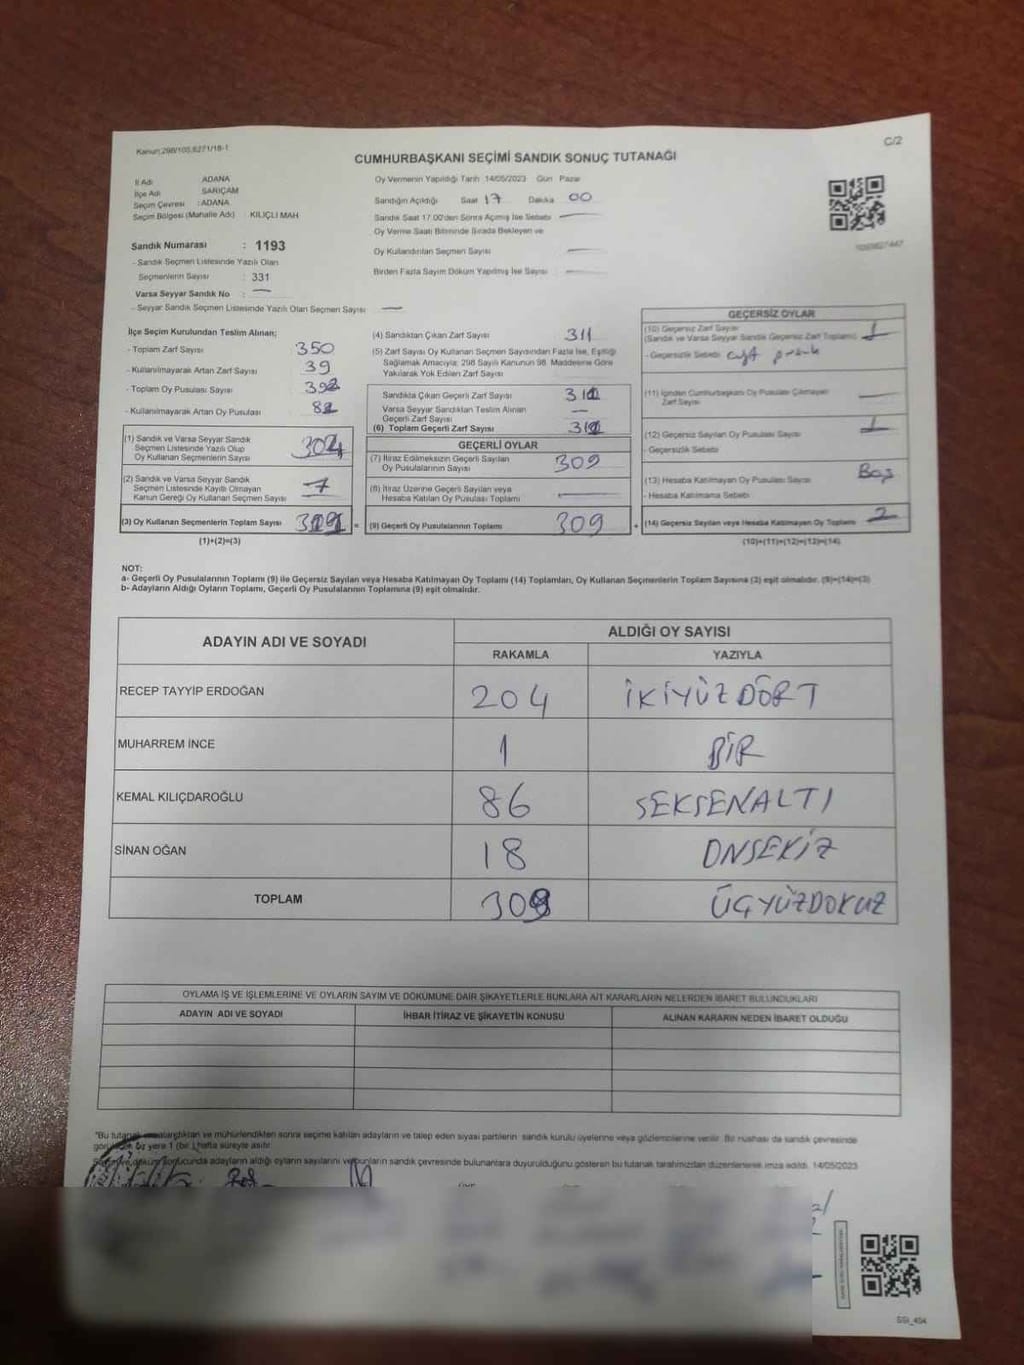 Kanun:298/105,6271/18-1
C/2
CUMHURBAŞKANI SEÇİMİ SANDIK SONUÇ TUTANAĞI
İl Adı ADANA
İlçe Adı SARIÇAM
Seçim Çevresi : ADANA
Seçim Bölgesi (Mahalle Adı) : KILIÇLI MAH
Sandık Numarası : 1193
- Sandık Seçmen Listesinde Yazılı Olan
Seçmenlerin Sayısı : 331
Varsa Seyyar Sandık No : —
- Seyyar Sandık Seçmen Listesinde Yazılı Olan Seçmen Sayısı —
Oy Vermenin Yapıldığı Tarih 14/05/2023 Gün Pazar
Sandığın Açıldığı Saat 17 Dakika 00
Sandık Saat 17.00'den Sonra Açılmış İse Sebebi —
Oy Verme Saati Bitiminde Sırada Bekleyen ve
Oy Kullandırılan Seçmen Sayısı —
Birden Fazla Sayım Döküm Yapılmış İse Sayısı —
İlçe Seçim Kurulundan Teslim Alınan;
- Toplam Zarf Sayısı 350
- Kullanılmayarak Artan Zarf Sayısı 39
- Toplam Oy Pusulası Sayısı
- Kullanılmayarak Artan Oy Pusulası
(1) Sandık ve Varsa Seyyar Sandık
Seçmen Listesinde Yazılı Olup
Oy Kullanan Seçmenlerin Sayısı 304
(2) Sandık ve Varsa Seyyar Sandık
Seçmen Listesinde Kayıtlı Olmayan
Kanun Gereği Oy Kullanan Seçmen Sayısı 7
(3) Oy Kullanan Seçmenlerin Toplam Sayısı
(1)+(2)=(3)
(4) Sandıktan Çıkan Zarf Sayısı 311
(5) Zarf Sayısı Oy Kullanan Seçmen Sayısından Fazla İse, Eşitliği
Sağlamak Amacıyla; 298 Sayılı Kanunun 98. Maddesine Göre
Yakılarak Yok Edilen Zarf Sayısı
Sandıkta Çıkan Geçerli Zarf Sayısı
Varsa Seyyar Sandıktan Teslim Alınan
Geçerli Zarf Sayısı —
(6) Toplam Geçerli Zarf Sayısı
GEÇERLİ OYLAR
(7) İtiraz Edilmeksizin Geçerli Sayılan
Oy Pusulalarının Sayısı 309
(8) İtiraz Üzerine Geçerli Sayılan veya
Hesaba Katılan Oy Pusulası Toplamı —
= (9) Geçerli Oy Pusulalarının Toplamı 309
GEÇERSİZ OYLAR
(10) Geçersiz Zarf Sayısı
(Sandık ve Varsa Seyyar Sandık Geçersiz Zarf Toplamı) 1
- Geçersizlik Sebebi
(11) İçinden Cumhurbaşkanı Oy Pusulası Çıkmayan
Zarf Sayısı —
(12) Geçersiz Sayılan Oy Pusulası Sayısı 1
- Geçersizlik Sebebi
(13) Hesaba Katılmayan Oy Pusulası Sayısı Boş
- Hesaba Katılmama Sebebi
+ (14) Geçersiz Sayılan veya Hesaba Katılmayan Oy Toplamı 2
(10)+(11)+(12)+(13)=(14)
NOT:
a- Geçerli Oy Pusulalarının Toplamı (9) ile Geçersiz Sayılan veya Hesaba Katılmayan Oy Toplamı (14) Toplamları, Oy Kullanan Seçmenlerin Toplam Sayısına (3) eşit olmalıdır. (9)+(14)=(3)
b- Adayların Aldığı Oyların Toplamı, Geçerli Oy Pusulalarının Toplamına (9) eşit olmalıdır.
ADAYIN ADI VE SOYADI ALDIĞI OY SAYISI
RAKAMLA YAZIYLA
RECEP TAYYİP ERDOĞAN 204 İKİYÜZDÖRT
MUHARREM İNCE 1 BİR
KEMAL KILIÇDAROĞLU 86 SEKSENALTI
SİNAN OĞAN 18 ONSEKİZ
TOPLAM 309 ÜÇYÜZDOKUZ
OYLAMA İŞ VE İŞLEMLERİNE VE OYLARIN SAYIM VE DÖKÜMÜNE DAİR ŞİKAYETLERLE BUNLARA AİT KARARLARIN NELERDEN İBARET BULUNDUKLARI
ADAYIN ADI VE SOYADI İHBAR İTİRAZ VE ŞİKAYETİN KONUSU ALINAN KARARIN NEDEN İBARET OLDUĞU
"Bu tutanak imzalandıktan ve mühürlendikten sonra seçime katılan adayların ve talep eden siyasi partilerin sandık kurulu üyelerine veya gözlemcilerine verilir. Bir nüshası da sandık çevresinde
bir yere 1 (bir) hafta süreyle asılır.
döküm sonucunda adayların aldığı oyların sayılarını ve bunların sandık çevresinde bulunanlara duyurulduğunu gösteren bu tutanak tarafımızdan düzenlenerek imza edildi. 14/05/2023
SSI_454